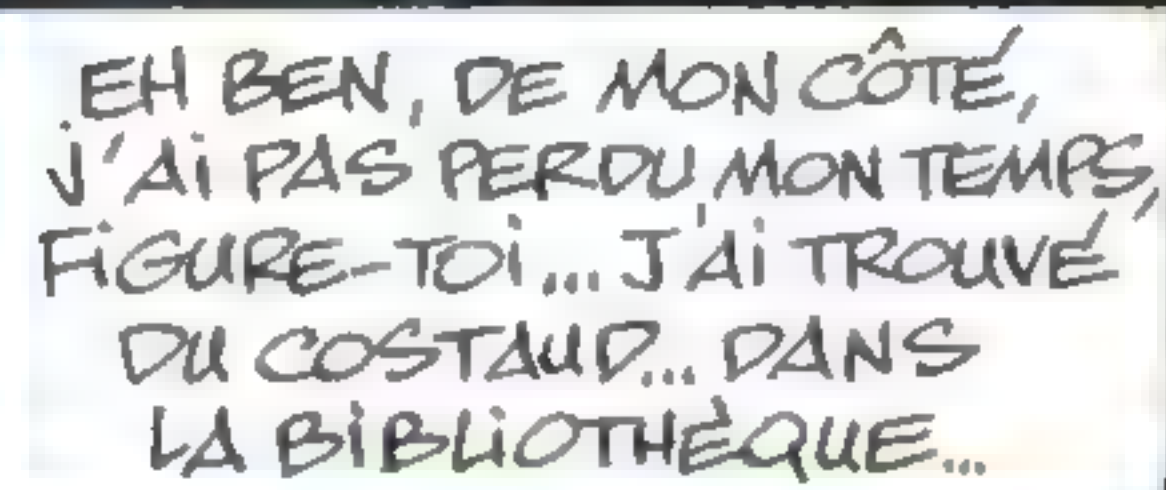 EH BEN, DE MON CÔTÉ,
J'AI PAS PERDU MON TEMPS,
FIGURE-TOI... J'AI TROUVÉ
DU COSTAUD... DANS
LA BIBLIOTHÈQUE...